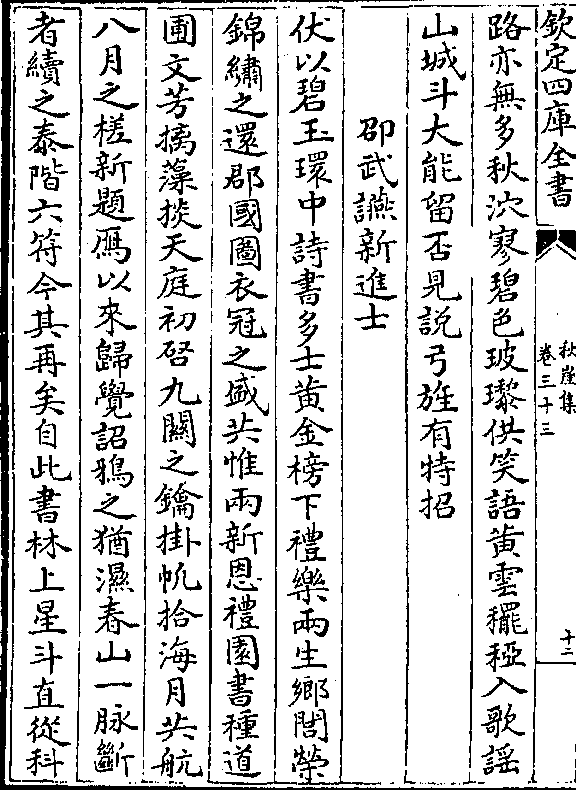 欽定四庫全書
秋崖集
卷三十三
十二
路亦無多秋泬寥碧色玻瓈供笑語黄雲䆉稏入歌謡
山城斗大能留否見説弓旌有特招
邵武讌新進士
伏以碧玉環中詩書多士黄金榜下禮樂兩生鄉閭榮
錦繡之還郡國圖衣冠之盛共惟兩新恩禮園書種道
圃文芳摛藻掞天庭初啓九關之鑰掛帆拾海月共航
八月之槎新題鴈以來歸覺詔鵶之猶濕春山一脉斷
者續之泰階六符今其再矣自此書林上星斗直從科